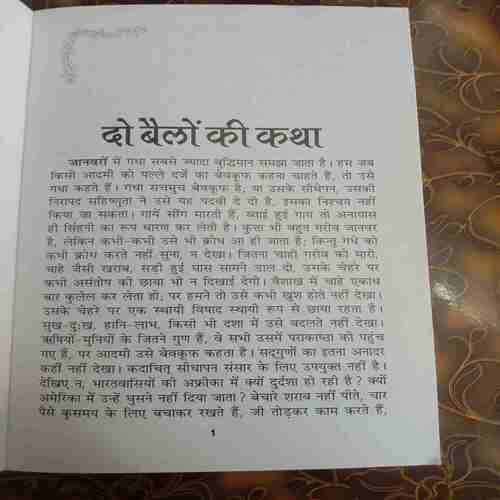 दो बैलों की कथा
जानवरों में गधा सबसे ज्यादा बुद्धिमान समझा जाता है। हम जब
किसी आदमी को पल्ले दर्जे का बेवकूफ कहना चाहते हैं, तो उसे
गधा कहते हैं। गधा सचमुच बेवकूफ है, या उसके सीधेपन, उसकी
निरापद सहिष्णुता ने उसे यह पदवी दे दी है, इसका निश्चय नहीं
किया जा सकता। गायें सींग मारती हैं, ब्याई हुई गाय तो अनायास
ही सिंहनी का रूप धारण कर लेती है। कुत्ता भी बहुत गरीब जानवर
है, लेकिन कभी-कभी उसे भी क्रोध आ ही जाता है; किन्तु गधे को
कभी क्रोध करते नहीं सुना, न देखा। जितना चाहो गरीब को मारो,
चाहे जैसी खराब, सड़ी हुई घास सामने डाल दो, उसके चेहरे पर
कभी असंतोष की छाया भी न दिखाई देगी। वैशाख में चाहे एकाध
बार कुलेल कर लेता हो; पर हमने तो उसे कभी खुश होते नहीं देखा।
उसके चेहरे पर एक स्थायी विषाद स्थायी रूप से छाया रहता है।
सुख-दुःख, हानि-लाभ, किसी भी दशा में उसे बदलते नहीं देखा।
ऋषियों-मुनियों के जितने गुण हैं, वे सभी उसमें पराकाष्ठा को पहुंच
गए हैं, पर आदमी उसे बेवकूफ कहता है। सद्गुणों का इतना अनादर
कहीं नहीं देखा। कदाचित् सीधापन संसार के लिए उपयुक्त नहीं है।
देखिए न, भारतवासियों की अफ्रीका में क्यों दुर्दशा हो रही है ? क्यों
अमेरिका में उन्हें घुसने नहीं दिया जाता ? बेचारे शराब नहीं पीते, चार
पैसे कुसमय के लिए बचाकर रखते हैं, जी तोड़कर काम करते हैं,
1